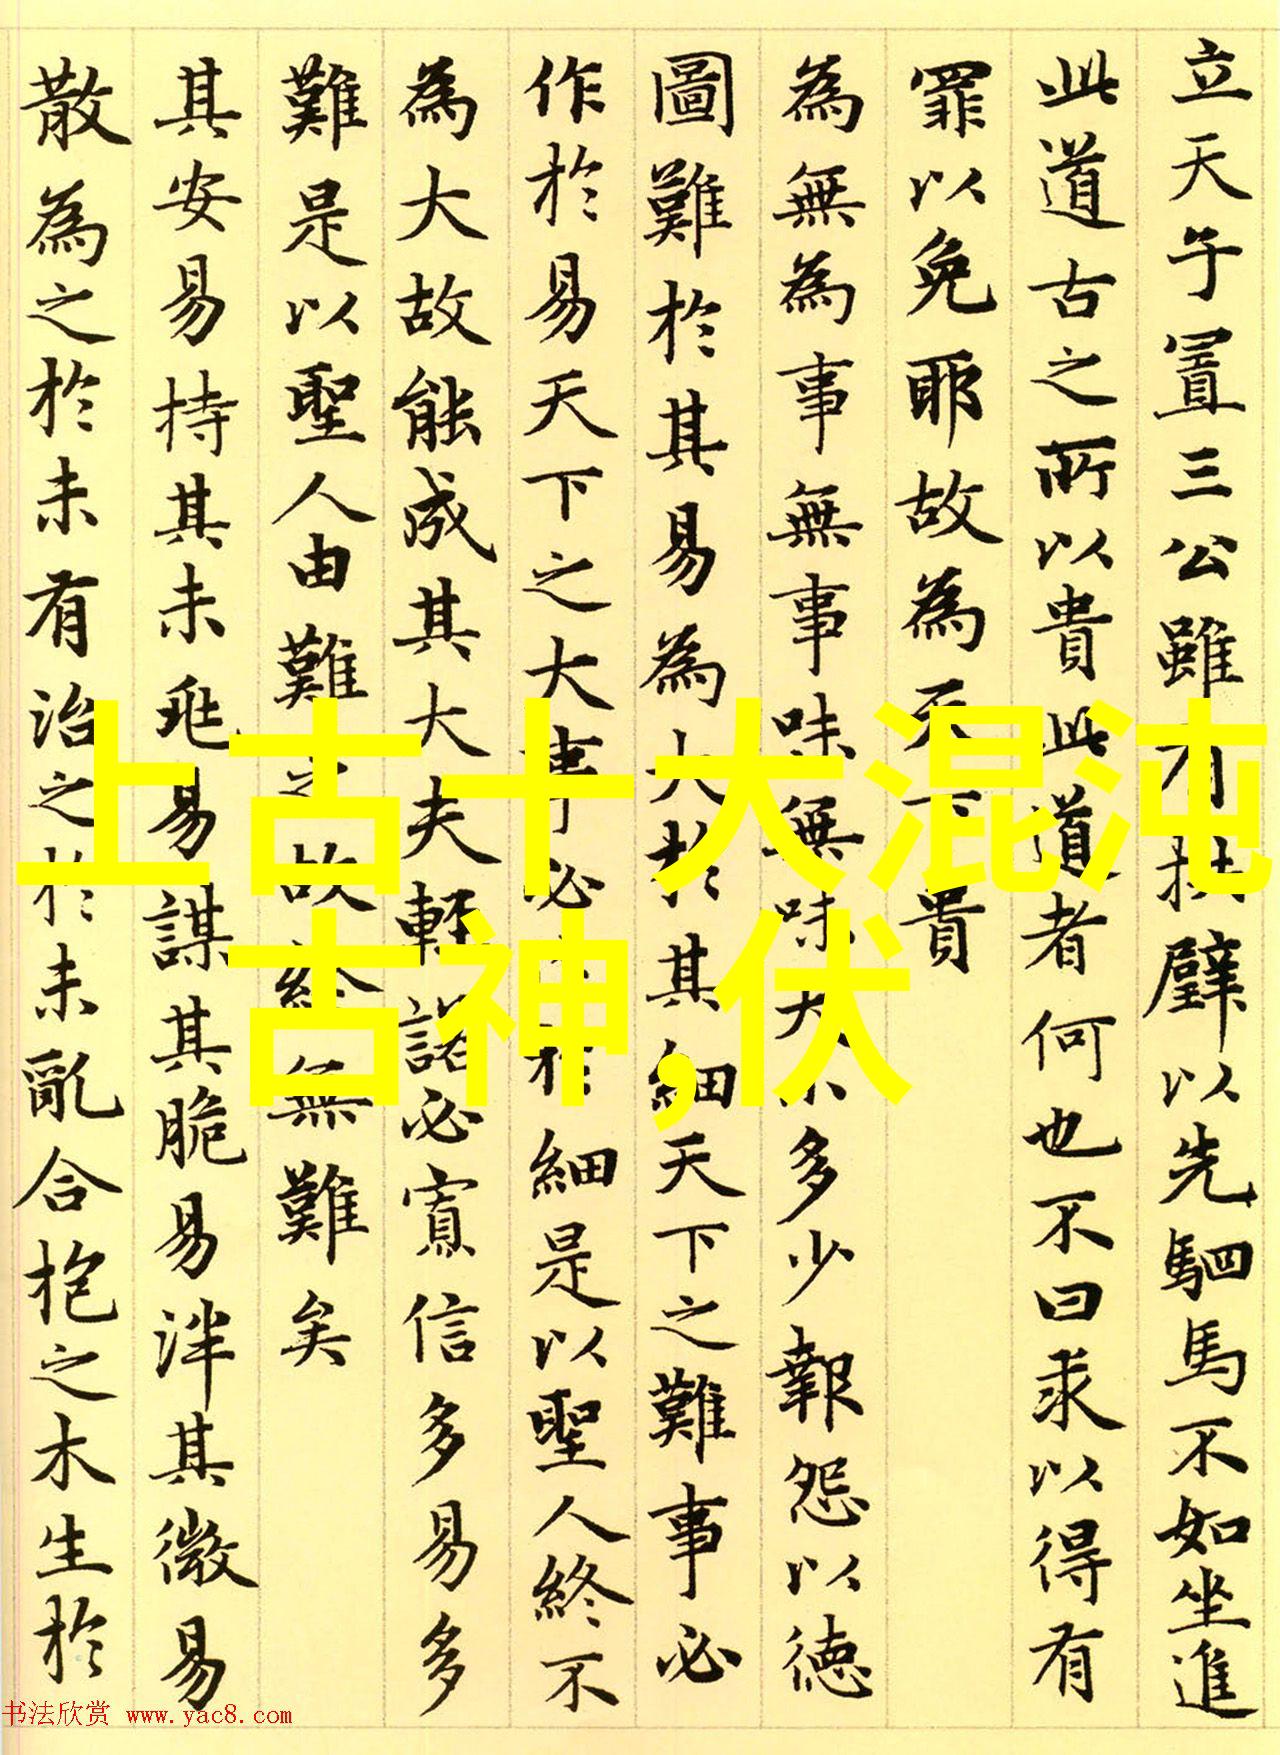 立天子置三公雖有拱璧以先駟馬不如坐進
此道古之所以貴此道者何也不曰求以得有
罪以免耶故為天下貴
為無為事無事味無味大小多少報怨以德
圖難於其易為大於其細天下之難事必
作於易天下之大事必作於細是以聖人終不
為大故能成其大夫輕諾必寡信多易多
難是以聖人由難之故終無難矣
其安易持其未兆易謀其脆易泮其微易
散為之於未有治之於未亂合抱之木生於
上古十大混沌
古神,伏
书法欣赏 www.yac8.com